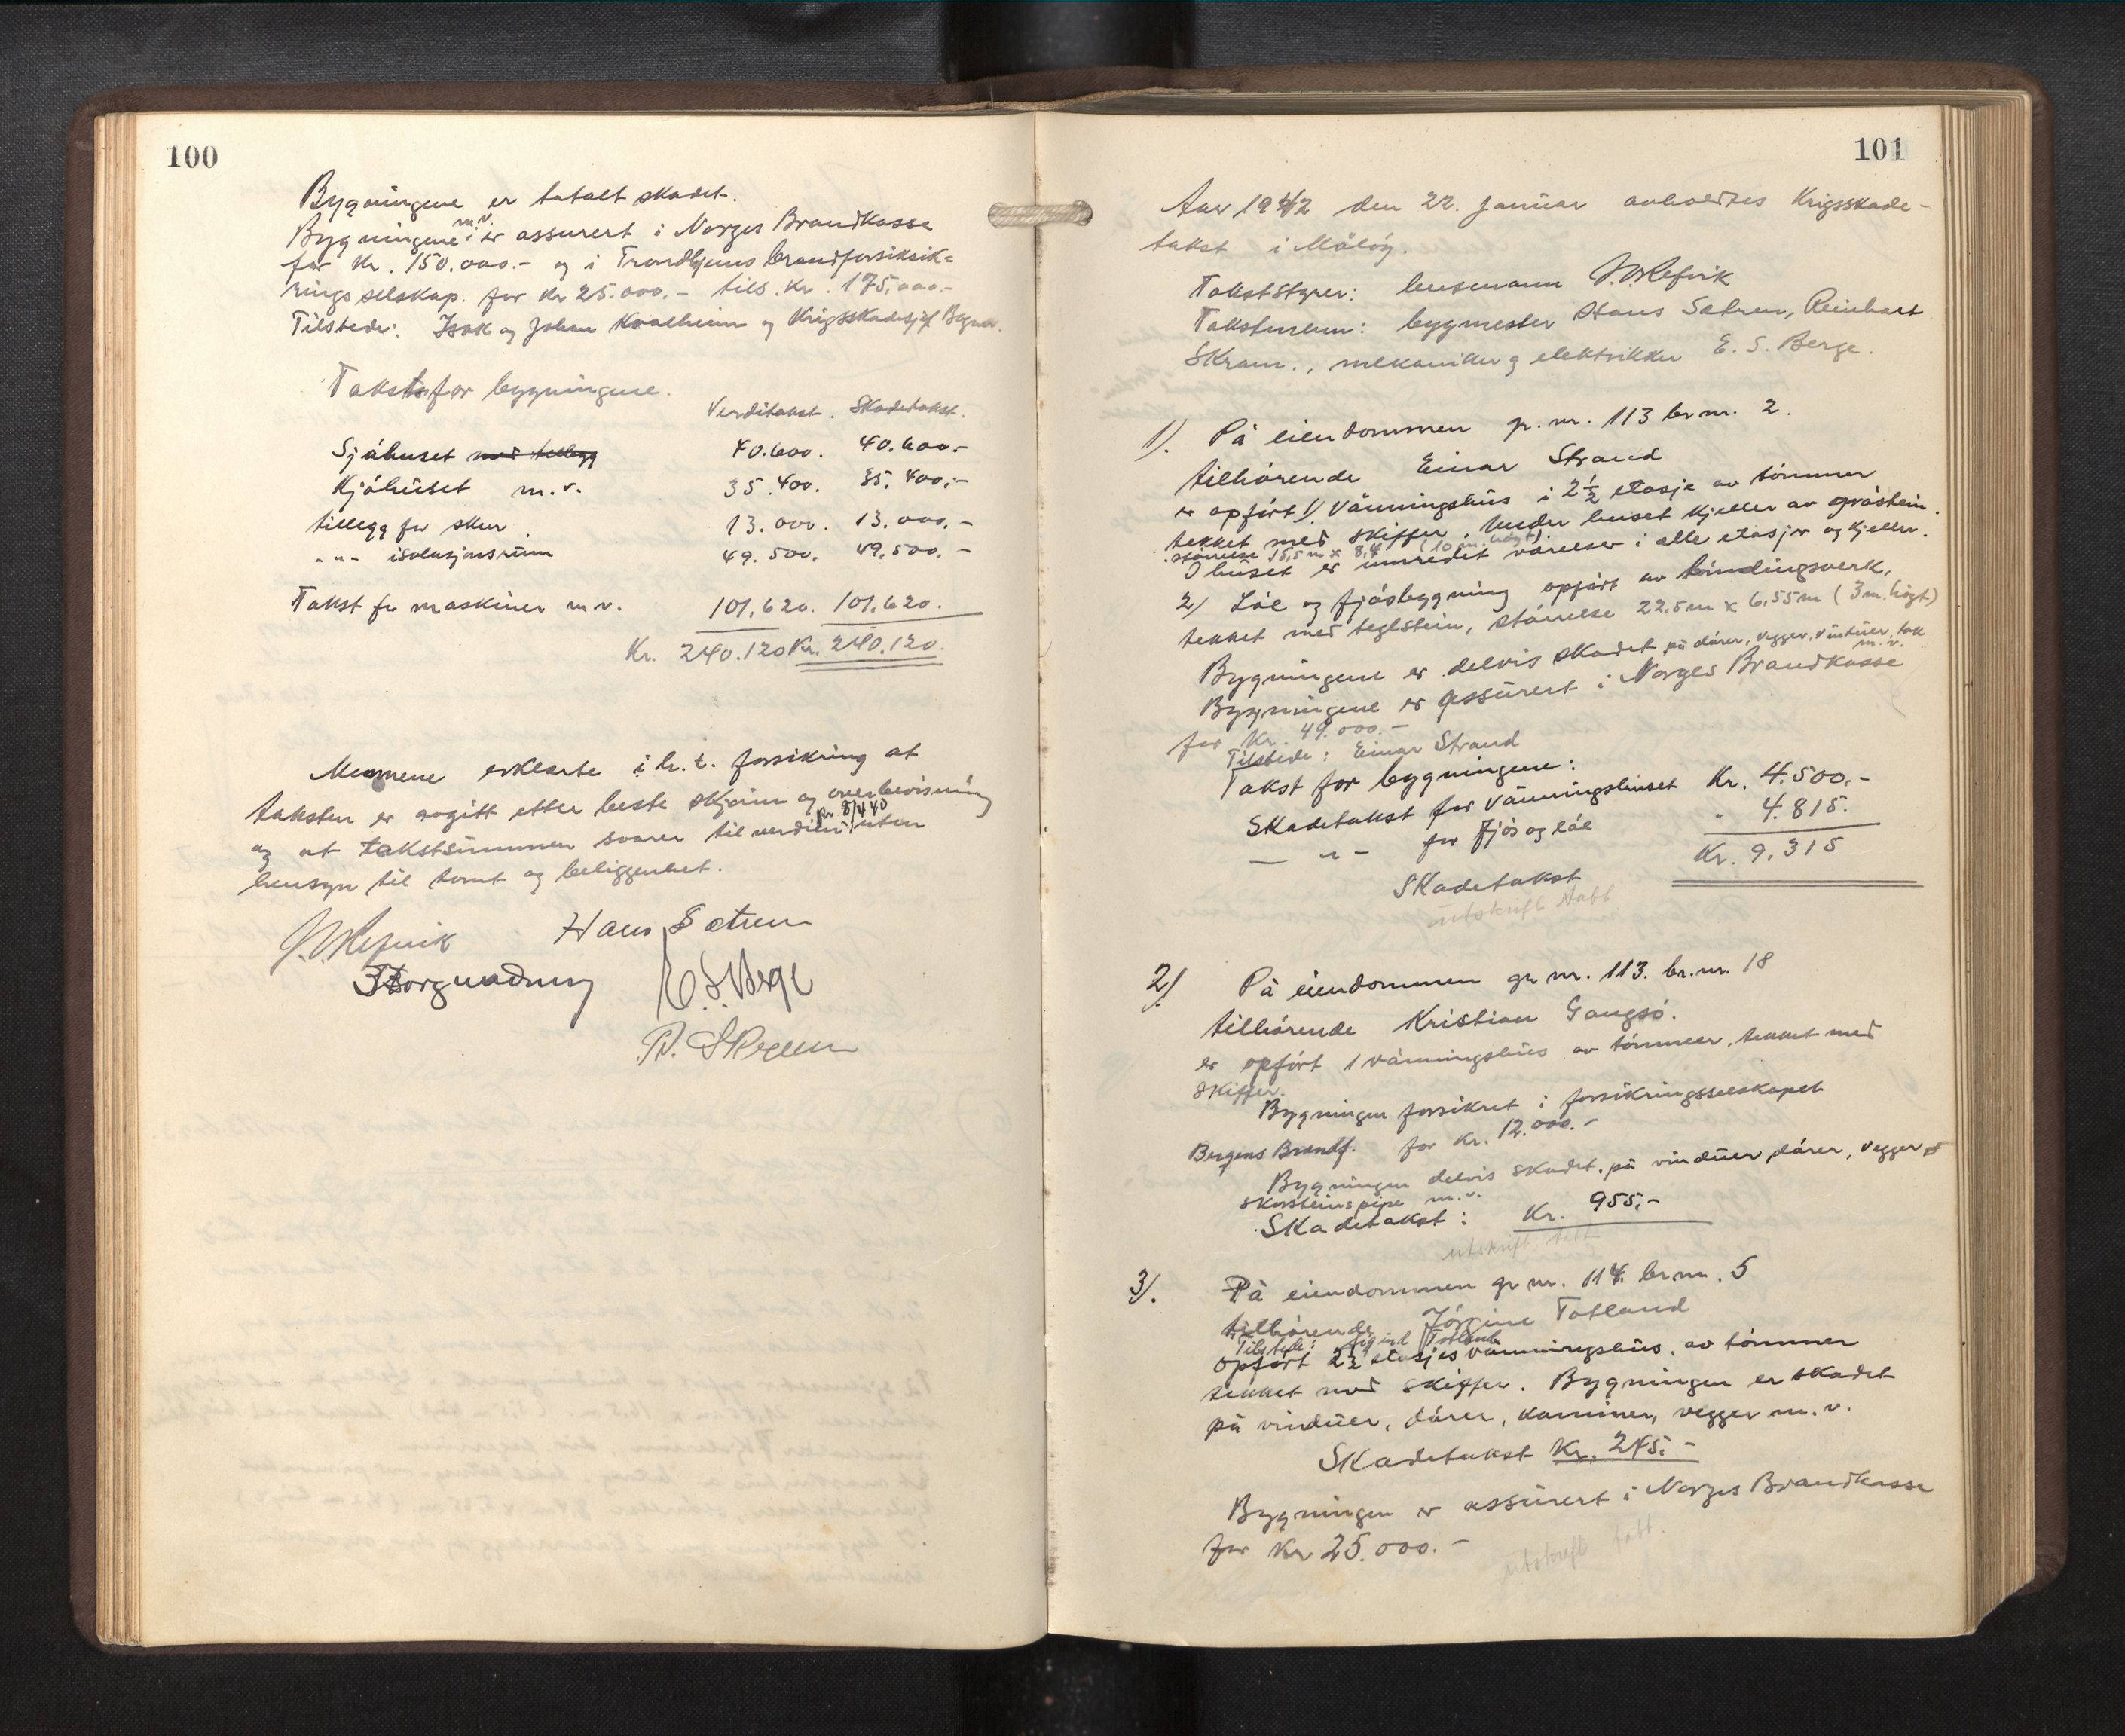 100
Bygningene er totalt skadet.
Bygningene m.v. er assurert i Norges Brandkasse
for kr. 150.000.- og i Trondhjems brandforsiksik=
ringsselskap. for kr 25.000.- tils. kr. 175.000.-
Tilstede: Isak og Johan Kvalheim og Krigsskadesjef
Takst for bygningene.
Verditakst. Skadetakst.
Sjåhuset med tillegg 40.600. 40.600.-
Kjøhuset m.v. 35.400. 35.400.-
tillegg for skur 13.000. 13.000.-
-"- isolasjonsrum 49.500. 49.500.-
Takst for maskiner m.v. 101.620. 101.620.
Kr. 240.120 Kr. 240.120.
Mennene erklærte i h.t. forsikring at
taksten er avgitt etter beste skjønn og overbevisning
og at takstsummen svarer til verdien pr. 8/4 40 uten
hensyn til tomt og beliggenhet.
J. Refvik Hans Sætren
E. S. Berge
R. Skram
101
Aar 1942 den 22. januar avholdtes Krigsskade-
takst i Måløy.
Takststyrer: lensmann J. Refvik
Takstmenn: bygmester Hans Sætren, Reinhart
Skram., mekaniker og elektriker E. S. Berge.
1). På eiendommen gr. nr. 113 br nr. 2.
tilhørende Einar Strand
er opført 1) Våningshus i 2½ etasje av tømmer
tekket med skiffer. Under huset kjeller av gråstein.
størrelse 15,5 m x 8,4 (10 m. høgt)
I huset er innredet værelser i alle etasjer og kjeller.
2) Løe og fjøsbygning opført av bindingsverk,
tekket med teglstein, størrelse 22,5 m x 6,55 m (3 m. høgt)
Bygningene er delvis skadet på dører, vegger, vinduer, tak
m.v.
Bygningene er assurert i Norges Brandkasse
for kr. 49.000.-
Tilstede: Einar Strand
Takst for bygningene:
Skadetakst for våningshuset Kr. 4.500.-
— " — for fjøs og løe " 4.815.
Skadetakst Kr. 9.315
utskrift tatt
2) På eiendommen gr. nr. 113. br. nr. 18
tilhørende Kristian Gangsø.
er opført 1 våningshus av tømmer, tekket med
skiffer.
Bygningen forsikret i forsikringsselskapet
Bergens Brandf. for kr. 12.000.-
Bygningen delvis skadet på vinduer dører, vegger
skorsteinspipe m.v.
Skadetakst: Kr. 955.-
utskrift tatt
3). På eiendommen gr nr. 114. br nr. 5
tilhørende Jørgine Totland
Tilstede: Totland
opført 2½ etasjes våningshus, av tømmer
tekket med skiffer. Bygningen er skadet
på vinduer, dører, kaminer, vegger m.v.
Skadetakst Kr. 245.-
Bygningen er assurert i Norges Brandkasse
for kr 25.000.-
utskrift tatt.